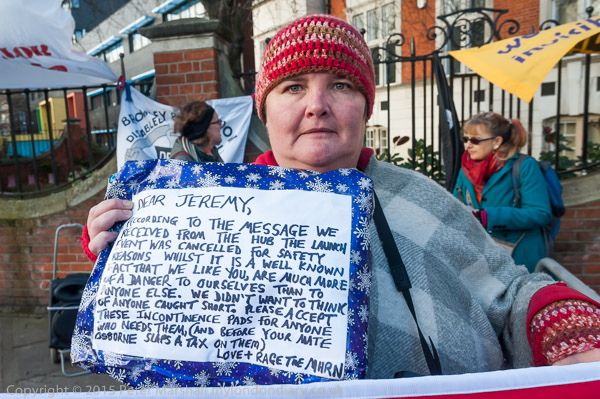 DEAR JEREMY,
ACCORDING TO THE MESSAGE WE
RECEIVED FROM THE HUB THE LAUNCH
EVENT WAS CANCELLED FOR SAFETY
REASONS WHILST IT IS A WELL KNOWN
FACT THAT WE LIKE YOU, ARE MUCH MORE
OF A DANGER TO OURSELVES THAN TO
ANYONE ELSE. WE DIDN'T WANT TO THINK
OF ANYONE CAUGHT SHORT. PLEASE ACCEPT
THESE INCONTINENCE PADS FOR ANYONE
WHO NEEDS THEM, (AND BEFORE YOUR MATE
OSBORNE SLAPS A TAX ON THEM)
LOVE + RAGE THE MHRN
Copyright © 2015